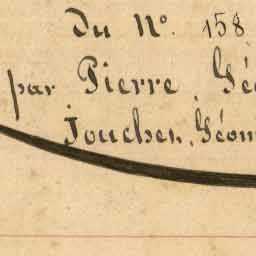 Du N°. 158
par Pierre, Gé
Jouches, Géom